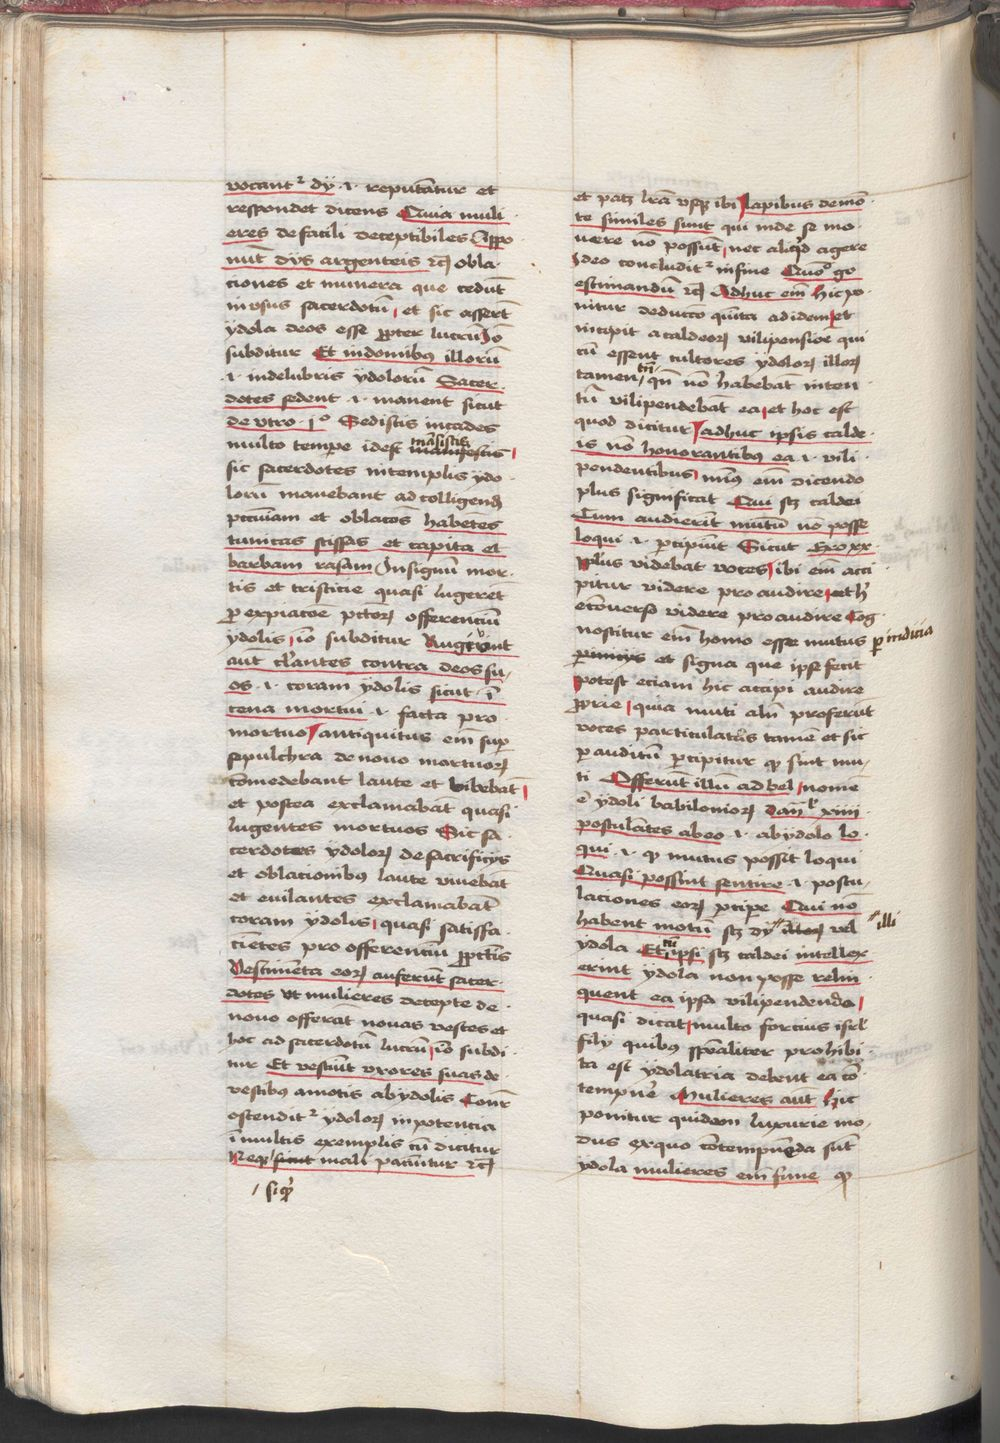 vocantᷣ dij .i. reputātur et
respondet dicens Quia muli
eres de facili deceptibiles Appo
nūt dijs argenteis ꝛcꝫ obla
ciones et munera que cedūt
in vsus sacerdotū et sic asserūt
ydola deos esse ꝓpter lucrū iō
subditur Et in domibus illorū
.i. in delubris ydolorū Sacer
dotes sedent .i. manent sicut
multo tempe idest
sic sacerdotes in templis ydo
lorū manebant ad colligendā
pecuniam et oblacōes habētes
tunicas scissas et capita et
barbam rasam In signū mor
tis et tristicie quasi lugerēt
ꝓ expiacōe pctōrꝫ offerenciū
ydolis iō subditur Rugiūt
aūt clāntes contra deos su
os .i. coram ydolis sicut ī
cena mortui .i. facta pro
mortuo antiquitus em̄ suꝑ
sepulchra de nouo mortuorꝫ
cōmedebant laute et bibebāt
et postea exclamabāt quasi
lugentes mortuos Sic sa
cerdotes ydolorꝫ de sacrificijs
et oblacionibꝰ laute viuebāt
et eiulantes exclamabāt
coram ydolis quasi satisfa
cientes pro offerenciū pctīs
Vestimēta eorꝫ auferūt sacer
dotes vt mulieres decepte de
nouo offerāt nouas vestes et
hoc ad sacerdotū lucrū iō subdi
tur Et vestiūt vxores suas de
vestibus amotis ab ydolis Cont
ostenditᷣ ydolorꝫ inpotencia
ī multis exemplis cū dicitur
Neqꝫ sicut mali paciuntur ꝛcꝫ
siqͥd
et patꝫ lrā vsqꝫ ibi lapibus de mō
te similes sunt qui inde se mo
uere nō possūt nec aliqͥd agere
Ideo concluditᷣ in fine Quōo gͦ
estimandū ꝛcꝫ Adhuc em̄ hic po
nitur deductio quīta ad idem et
incipit a caldeorꝫ vilipensiōe qui
cū essent cultores ydolorꝫ illorꝫ
tamen qn̄ nō habebāt inten
tū vilipendebāt ea et hoc est
quod dicitur adhuc ipsis calde
is nō honorantibus ea .i. vili
pendentibus minꝰ em̄ dicendo
plus significat Qui scꝫ caldei
Cum audierīt mutū nō posse
loqui .i. ꝑcipiūt Sicut Exo xx
Pplus videbat voces ibi em̄ acci
pitur videre pro audire et hͨ
econuerso videre pro audire Cog
noscitur em̄ homo esse mutus ꝑ indicia
et signa que ipse fecit
potest eciam hic accipi audire
ꝓprie quia muti aliī proferūt
voces particulatīs tamē et sic
ꝑ auditū ꝑcipitur ꝙ sint mu
ti Offerūt illū ad bel nomē
ē ydoli babiloniorꝫ Dan xiiii
postulātes ab eo .i. ab ydolo lo
qui .i. ꝙ mutus possit loqui
Quasi possint sentire .i. postu
laciones eorꝫ ꝑcipe Qui nō
habent motū scꝫ dij illi vel
ydola Et ipsi scꝫ caldei intellex
erint ydola non posse relin
quent ea ipsa vilipendendo
quasi dicat multo forcius isrl̄
filij quibus spēaliter prohibi
ta est ydolatria debent ea cō
tempne Mulieres aūt Hic
ponitur quidem luxurie mo
dus ex quo cōtempnēda sūt
ydola mulieres em̄ fune ꝙ